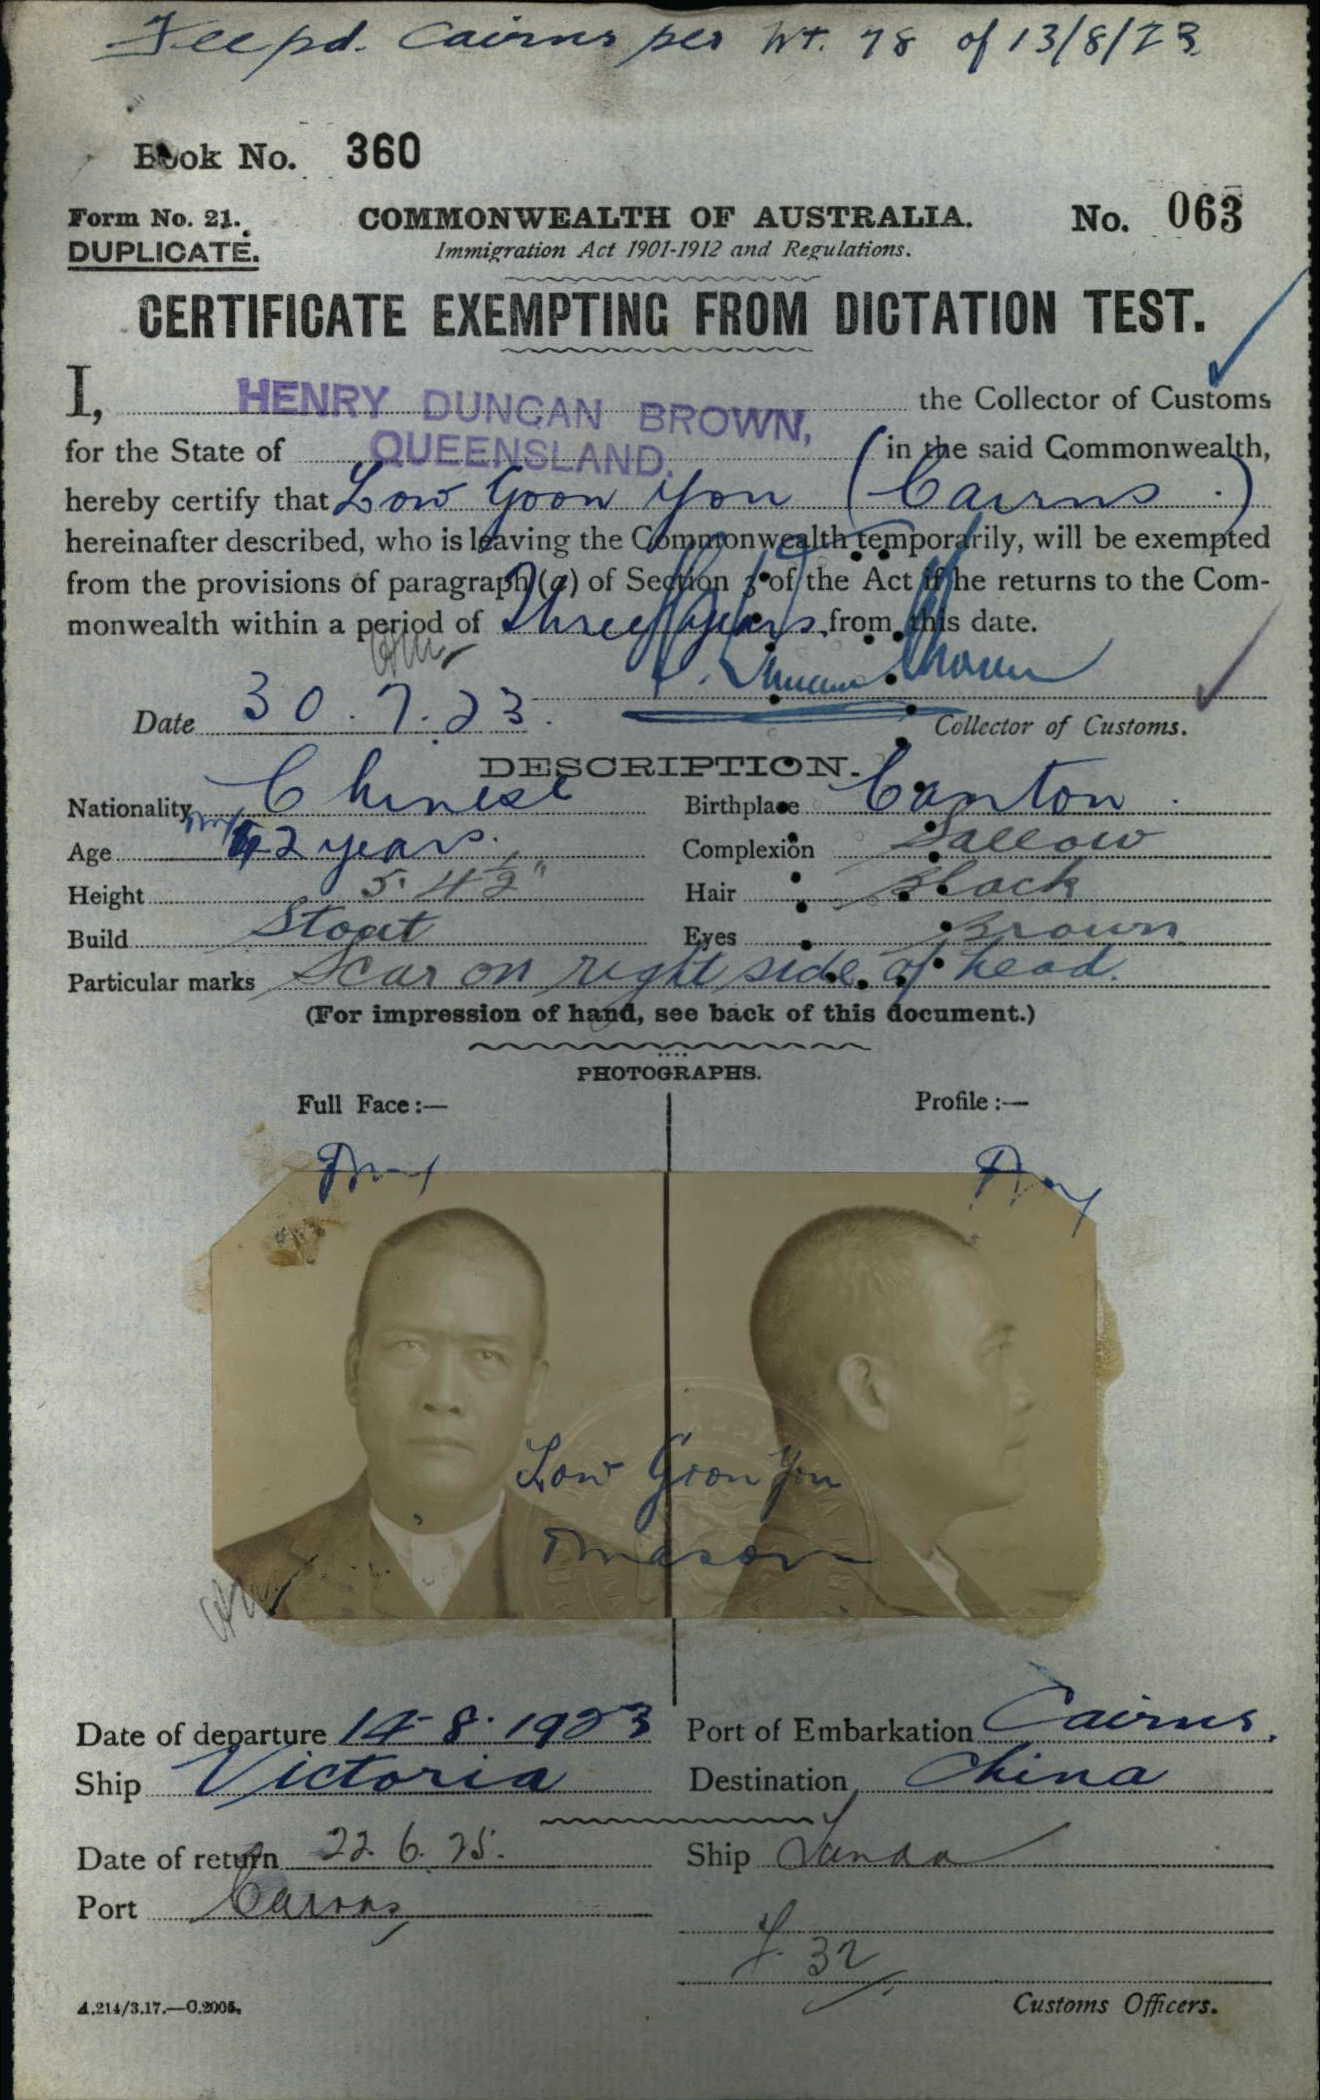 Fee pd. Cairns per Wt. 78 of 13/8/23
Book No. 360
Form No. 21. COMMONWEALTH OF AUSTRALIA. No. 063
DUPLICATE. Immigration Act 1901-1912 and Regulations.
CERTIFICATE EXEMPTING FROM DICTATION TEST.
I, HENRY DUNCAN BROWN, the Collector of Customs
for the State of QUEENSLAND. in the said Commonwealth,
hereby certify that Low Goon You (Cairns.)
hereinafter described, who is leaving the Commonwealth temporarily, will be exempted
from the provisions of paragraph (a) of Section 3 of the Act if he returns to the Com-
monwealth within a period of Three years from this date.
Date 30.7.23. Collector of Customs.
DESCRIPTION.
Nationality Chinese Birthplace Canton.
Age 42 years. Complexion Sallow
Height 5' 4½" Hair Black
Build Stout Eyes Brown
Particular marks Scar on right side of head.
(For impression of hand, see back of this document.)
PHOTOGRAPHS.
Full Face:— Profile:—
Low Goon You
Date of departure 14-8-1923 Port of Embarkation Cairns.
Ship Victoria Destination China
Date of return 22.6.25. Ship Tanda
Port Cairns
F. 32
A.214/3.17.—C.2005. Customs Officers.